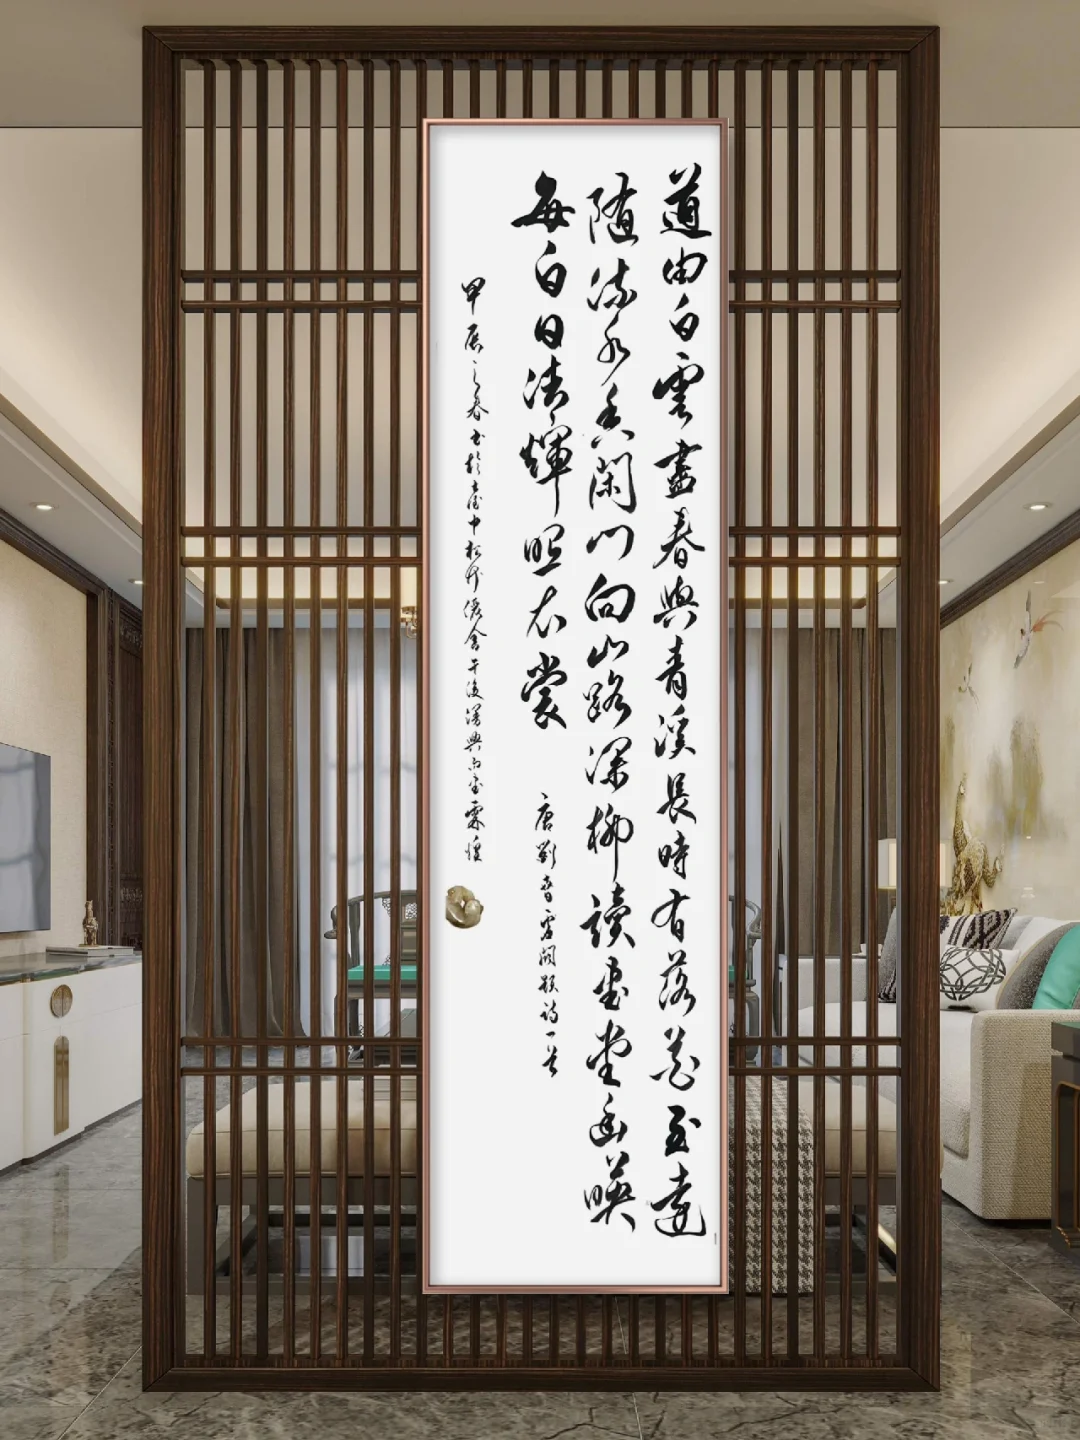 道由白雲盡春與青溪長時有落花至遠
隨流水香閑門向山路深柳讀書堂幽映
每白日清輝照衣裳 唐劉昚虛闕題詩一首
甲辰之春書於臺中松竹舍午後漫興書霖煌